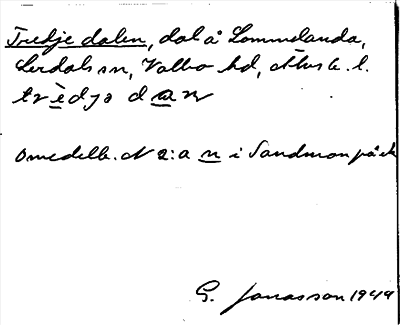 Tredje dalen, dal å Lommelanda,
Lerdals sn, Valbo hd, Älvsb. l.
trèdjə dan
omedelb. N 2:a n i Sandmon på ek
G. Jonasson 1949